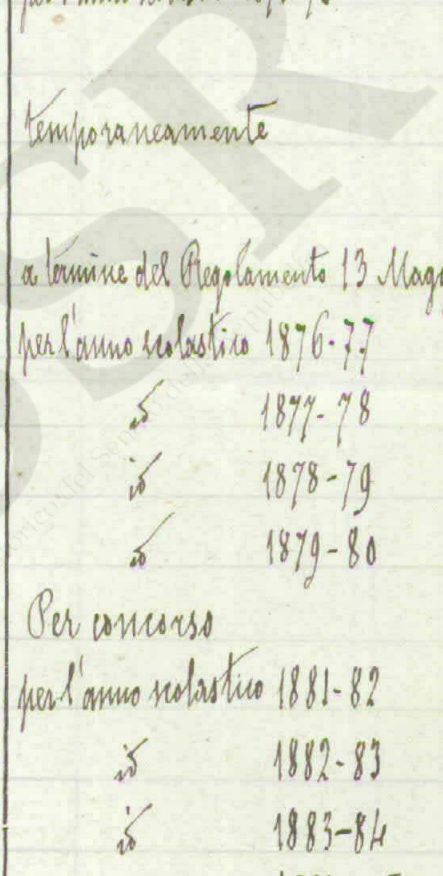 per l'anno
temporaneamente
a termine del Regolamento 13
per l'anno scolastico 1876-77
id 1877-78
id 1878-79
id 1879-80
Per concorso
per l'anno scolastico 1881-82
id 1882-83
id 1883-84